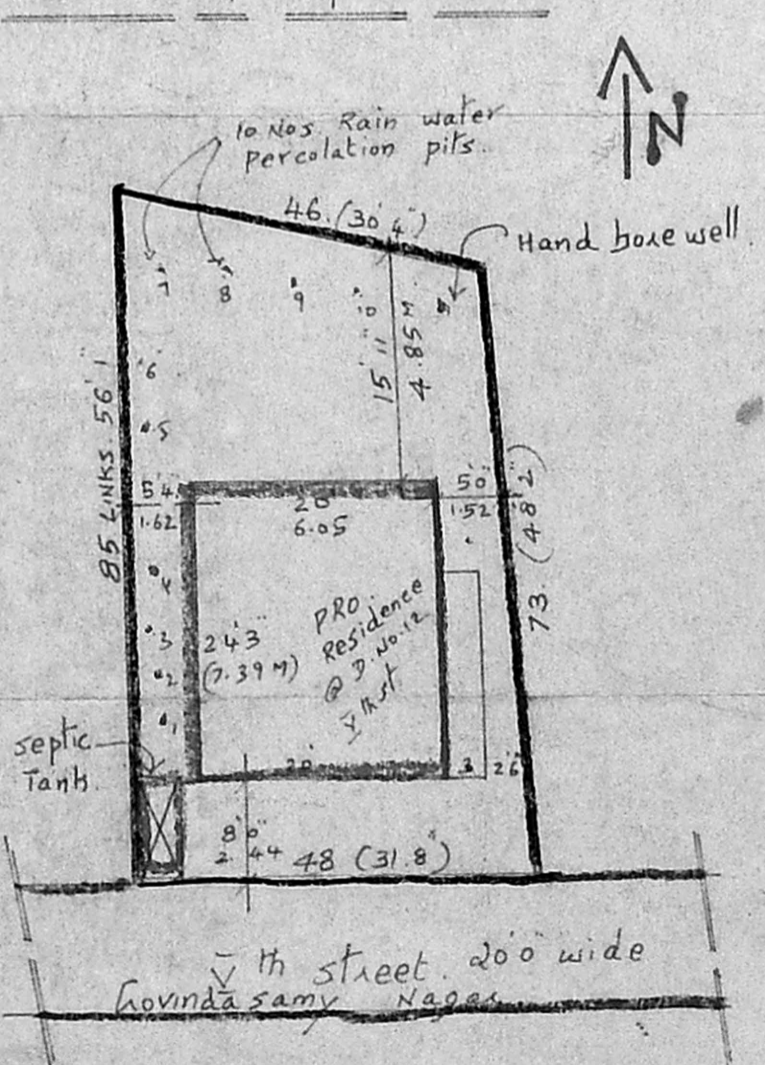 N
10 Nos Rain water
percolation pits.
46. (30' 4")
Hand bore well.
7
8
9
10
15' 11"
4.85 M.
6
5
85 LINKS. 56' 1"
5'4
1.62
20'
6.05
5'0"
1.52
73. (48' 2")
4
3
2
1
24'3"
(7.39 M)
PRO.
Residence
@ D. No. 12
Vth st
septic
Tank.
20'
3
2'6"
8' 0"
2.44
48 (31.8")
Vth street. 20'0" wide
Govindasamy Nagar.